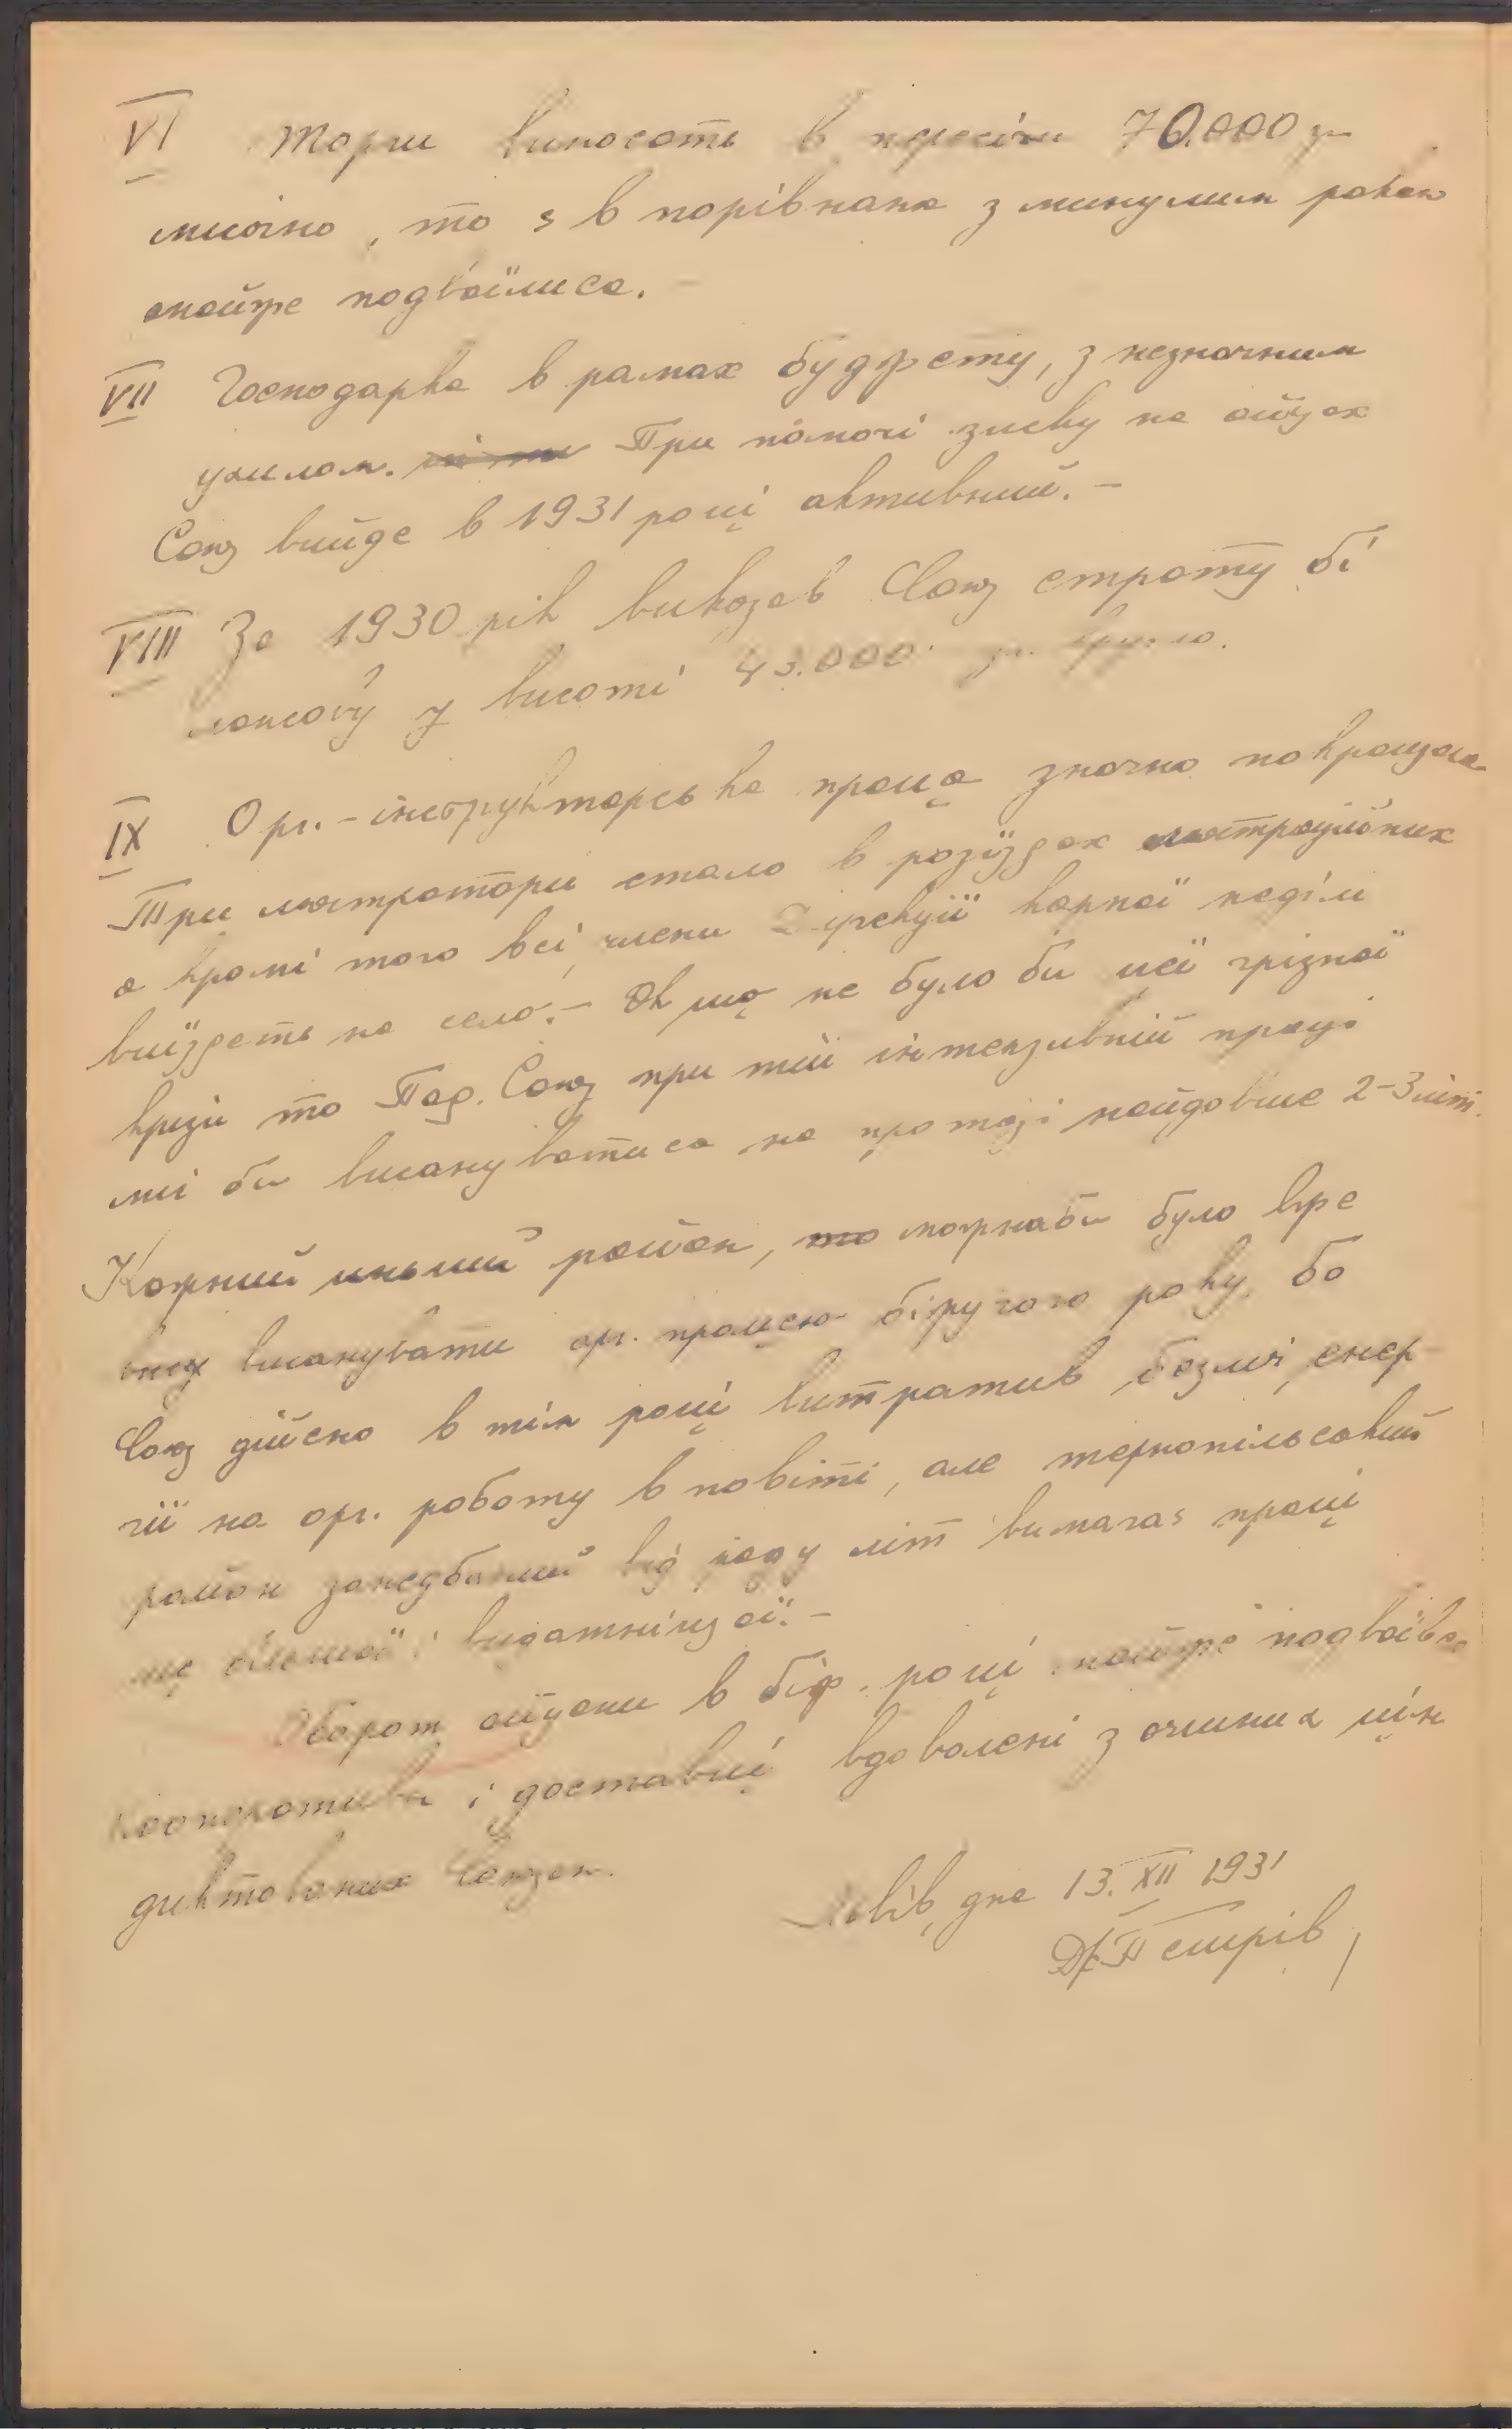 VI Торги виносять в пересічи 70.000 зл
місячно, то є в порівнаню з минулим роком
майже подвоїлися. –
VII Господарка в рамах буджету, з незначним
ухилом. При помочі зиску на яйцях
Союз вийде в 1931 році активний. –
VIII За 1930 рік виказав Союз страту бі
лянсову у висоті 43.000 зл. кругло.
IX Орг.-інструкторська праця значно покращала
Три люстратори стало в розїздах люстраційних
а кромі того всі члени Дирекції кожної неділі
виїздять на село. – Як що не було би цеї грізної
кризи то Под. Союз при тій інтензивній праці
міг би висануватися на протязі найдовше 2-3 літ.
Кожний иньший район, можнаби було вже
висанувати орг. працею біжучого року, бо
Союз дійсно в тім році витратив безліч енер
гії на орг. роботу в повіті, але тернопільський
район занедбаний від ряду літ вимагає праці
ще більшої і видатнійшої. –
Оборот яйцями в біж. році майже подвоївся
Кооперативи і доставці вдоволені з очинних цін
диктованих Союзом.
Львів, дня 13. XII 1931
Др. Петрів